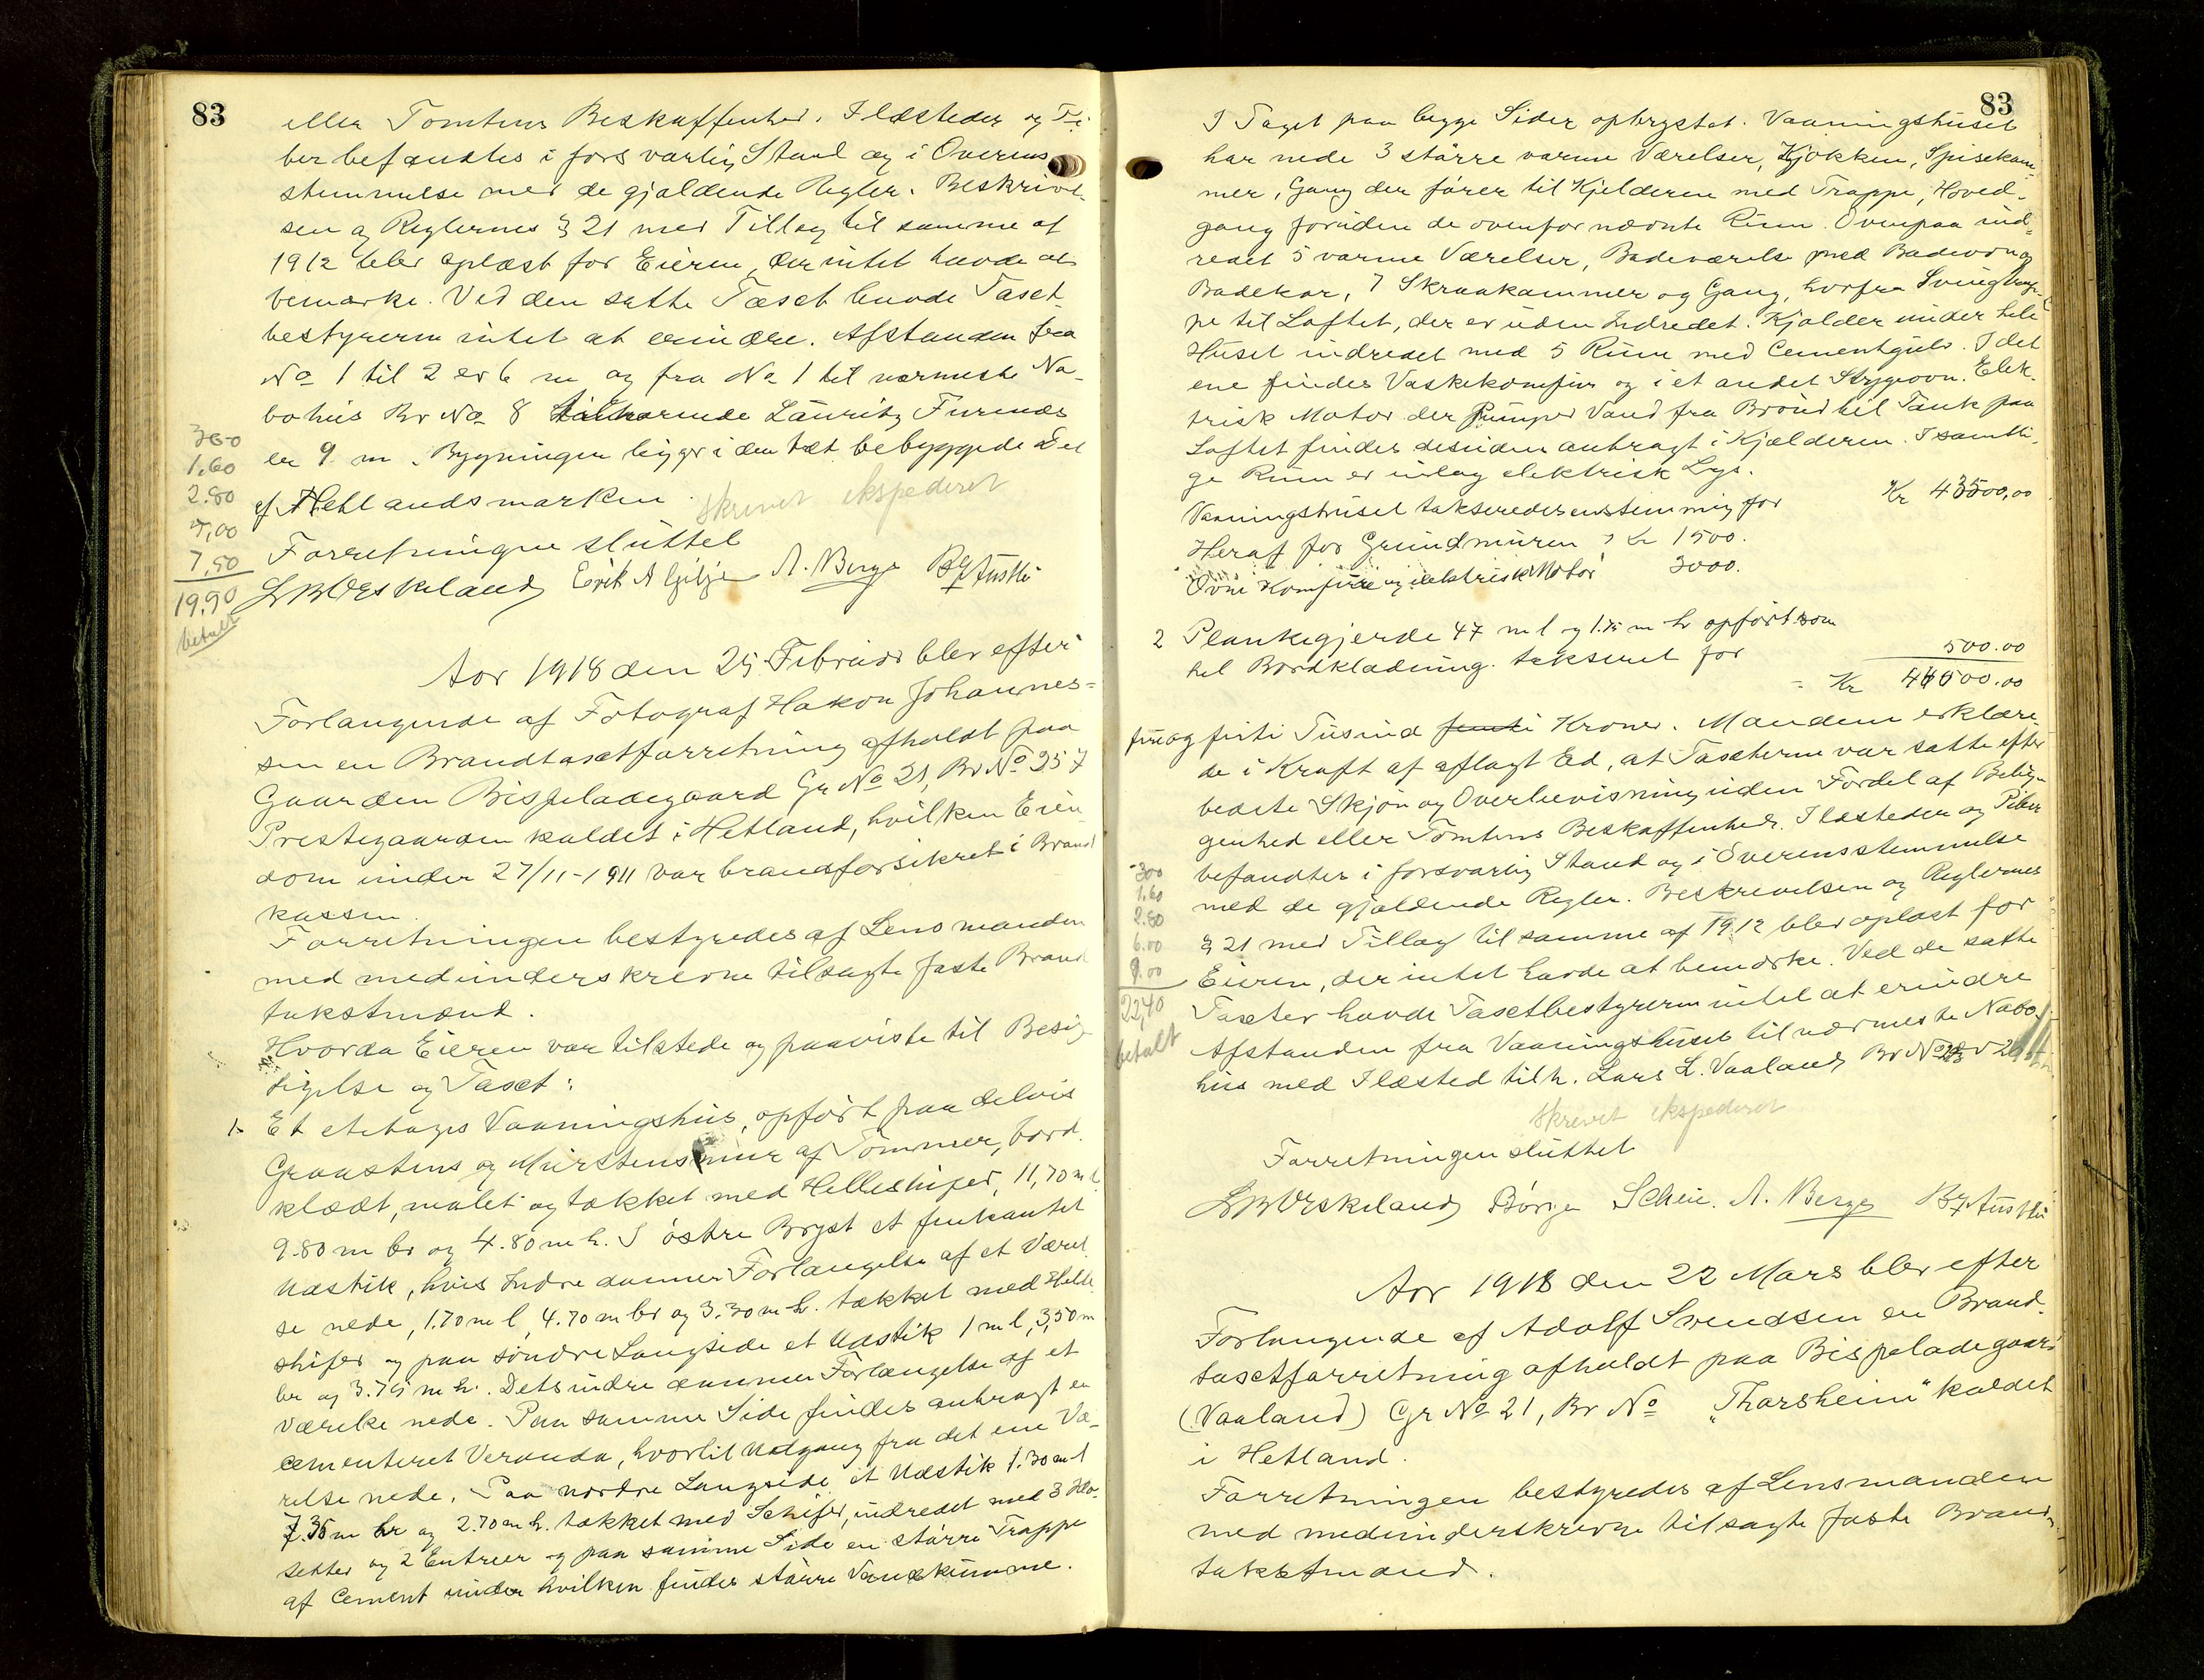 83
eller Tomtens Beskaffenhed. Ildsteder og Pi-
ber befandtes i forsvarlig Stand og i Overens-
stemmelse med de gjældende Regler. Beskrivel-
sen og Reglernes § 21 med Tillæg til samme af
1912 blev oplæst for Eieren, der intet havde at
bemærke. Ved den satte Taxt havde Taxt-
bestyreren intet at erindre. Afstanden fra
No 1 til 2 er 6 m og fra No 1 til nærmeste Na-
bohus Br No 8 tilhørende Lauritz Furenæs
er 9 m. Bygningen ligger i den tæt bebyggede Del
af Hetlandsmarken.
skrevet ekspederet
360
1,60
2.80
7,00
7,50
19.90
betalt
Forretningen sluttet
Erik A Gilje A. Berge
Aar 1918 den 25 Februar blev efter
Forlangende af Fotograf Hakon Johannes=
sen en Brandtaxtforretning afholdt paa
Gaarden Bispeladegaard Gr No 21, Br No 257
Prestegaarden kaldet i Hetland, hvilken Eien-
dom under 27/11-1911 var brandforsikret i Brand
kassen.
Forretningen bestyredes af Lensmanden
med medunderskrevne tilsagte faste Brand
takstmænd.
Hvorda Eieren var tilstede og paaviste til Besig-
tigelse og Taxt:
1. Et etetages Vaaningshus, opført paa delvis
Graastens og Murstensmur af Tømmer, bord-
klædt, malet og tækket med Helleskifer, 11,70 m l
9.80 m br og 4.80 m h. I østre Bryst et femkantet
Udstik, hvis Indre danner Forlængelse af et Værel
se nede, 1.70 m l, 4.70 m br og 3.30 m h. tækket med Helle
skifer og paa søndre Langside et Udstik 1 m l, 3,50 m
br og 3.75 m h. Dets indre danner Forlængelse af et
Værelse nede. Paa samme Side findes anbragt en
cementeret Veranda, hvortil Udgang fra det ene Væ-
relse nede. Paa nordre Langside et Udstik 1.30 m l
7.35 m br og 2.70 m h. tækket med Schifer, indredet med 3 Klo-
setter og 2 Entreer og paa samme Side en større Trappe
af Cement under hvilken findes større Vandkumme.
83
I Taget paa begge Sider opbrystet. Vaaningshuset
har nede 3 større varme Værelser, Kjøkken, Spisekam-
mer, Gang der fører til Kjelderen med Trappe, Hoved-
gang foruden de ovenfor nævnte Rum. Ovenpaa ind-
redet 5 varme Værelser, Badeværelse med Badeovn og
Badekar, 7 Skraakammer og Gang, hvorfra Svingtrap-
pe til Loftet, der er uden Indredet. Kjælder under hele
Huset indredet med 5 Rum med Cementgulv. I det
ene findes Vaskekomfur og i et andet Strygeovn. Elek-
trisk Motor der Pumper Vand fra Brønd til Tank paa
Loftet findes desuden anbragt i Kjælderen. I samtli-
ge Rum er indlag elektrisk Lys.
Vaaningshuset takseredes enstemmig for Kr 43500,00
Heraf for Grundmuren Kr 1500.
Ovne Komfure og elektrisk Motor 3000.
2 Plankegjerde 47 m l og 1.75 m h opført som
hel Bordklædning. takseret for 500.00
= Kr 44000.00
fireog firti Tusind femti Kroner. Mændene erklære-
de i Kraft af aflagt Ed, at Taxterne var satte efter
bedste Skjøn og Overbevisning uden Fordel af Belig-
genhed eller Tomtens Beskaffenhed. Ildsteder og Piber
befandtes i forsvarlig Stand og i Overensstemmelse
med de gjældende Regler. Beskrivelsen og Reglernes
§ 21 med Tillæg til samme af 1912 blev oplæst for
Eieren, der intet havde at bemærke. Ved de satte
Taxter havde Taxtbestyreren intet at erindre
Afstanden fra Vaaningshuset til nærmeste Nabo-
hus med Ildsted tilh. Lars L. Vaaland Br No
300
1.60
2.80
6.00
9.00
22,40
betalt
skrevet ekspederet
Forretningen sluttet
Børge Scheie. A. Berge
Aar 1918 den 22 Mars blev efter
Forlangende af Adolf Svendsen en Brand-
taxtforretning afholdt paa Bispeladegaard
(Vaaland) Gr No 21, Br No „Thorsheim" kaldet
i Hetland.
Forretningen bestyredes af Lensmanden
med medunderskrevne tilsagte faste Brand-
takstmænd.